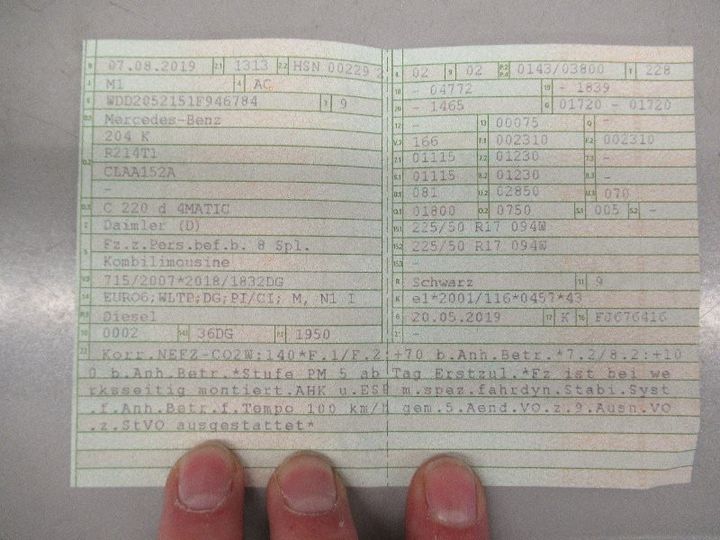 B 07.08.2019 2.1 1313 2.2 HSN 00229 2
J M1 4 AC
E WDD2052151F946784 3 9
D.1 Mercedes-Benz
204 K
D.2 R214T1
CLAA152A
-
D.3 C 220 d 4MATIC
2 Daimler (D)
5 Fz.z.Pers.bef.b. 8 Spl.
Kombilimousine
V.9 715/2007*2018/1832DG
14 EURO6;WLTP;DG;PI/CI; M, N1 I
P.3 Diesel
10 0002 14.1 36DG P.1 1950
L 02 9 02 P.2 P.4 0143/03800 T 228
18 - 04772 19 - 1839
20 - 1465 G 01720 - 01720
12 - 13 00075 Q -
V.7 166 F.1 002310 F.2 002310
7.1 01115 7.2 01230 7.3 -
8.1 01115 8.2 01230 8.3 -
U.1 081 U.2 02850 U.3 070
O.1 01800 O.2 0750 S.1 005 S.2 -
15.1 225/50 R17 094W
15.2 225/50 R17 094W
15.3 -
R Schwarz 11 9
K e1*2001/116*0457*43
6 20.05.2019 17 K 16 FJ676416
21 -
22 Korr.NEFZ-CO2W:140*F.1/F.2:+70 b.Anh.Betr.*7.2/8.2:+10
0 b.Anh.Betr.*Stufe PM 5 ab Tag Erstzul.*Fz ist bei we
rksseitig montiert.AHK u.ESP m.spez.fahrdyn.Stabi.Syst
.f.Anh.Betr.f.Tempo 100 km/h gem.5.Aend.VO.z.9.Ausn.VO
.z.StVO ausgestattet*